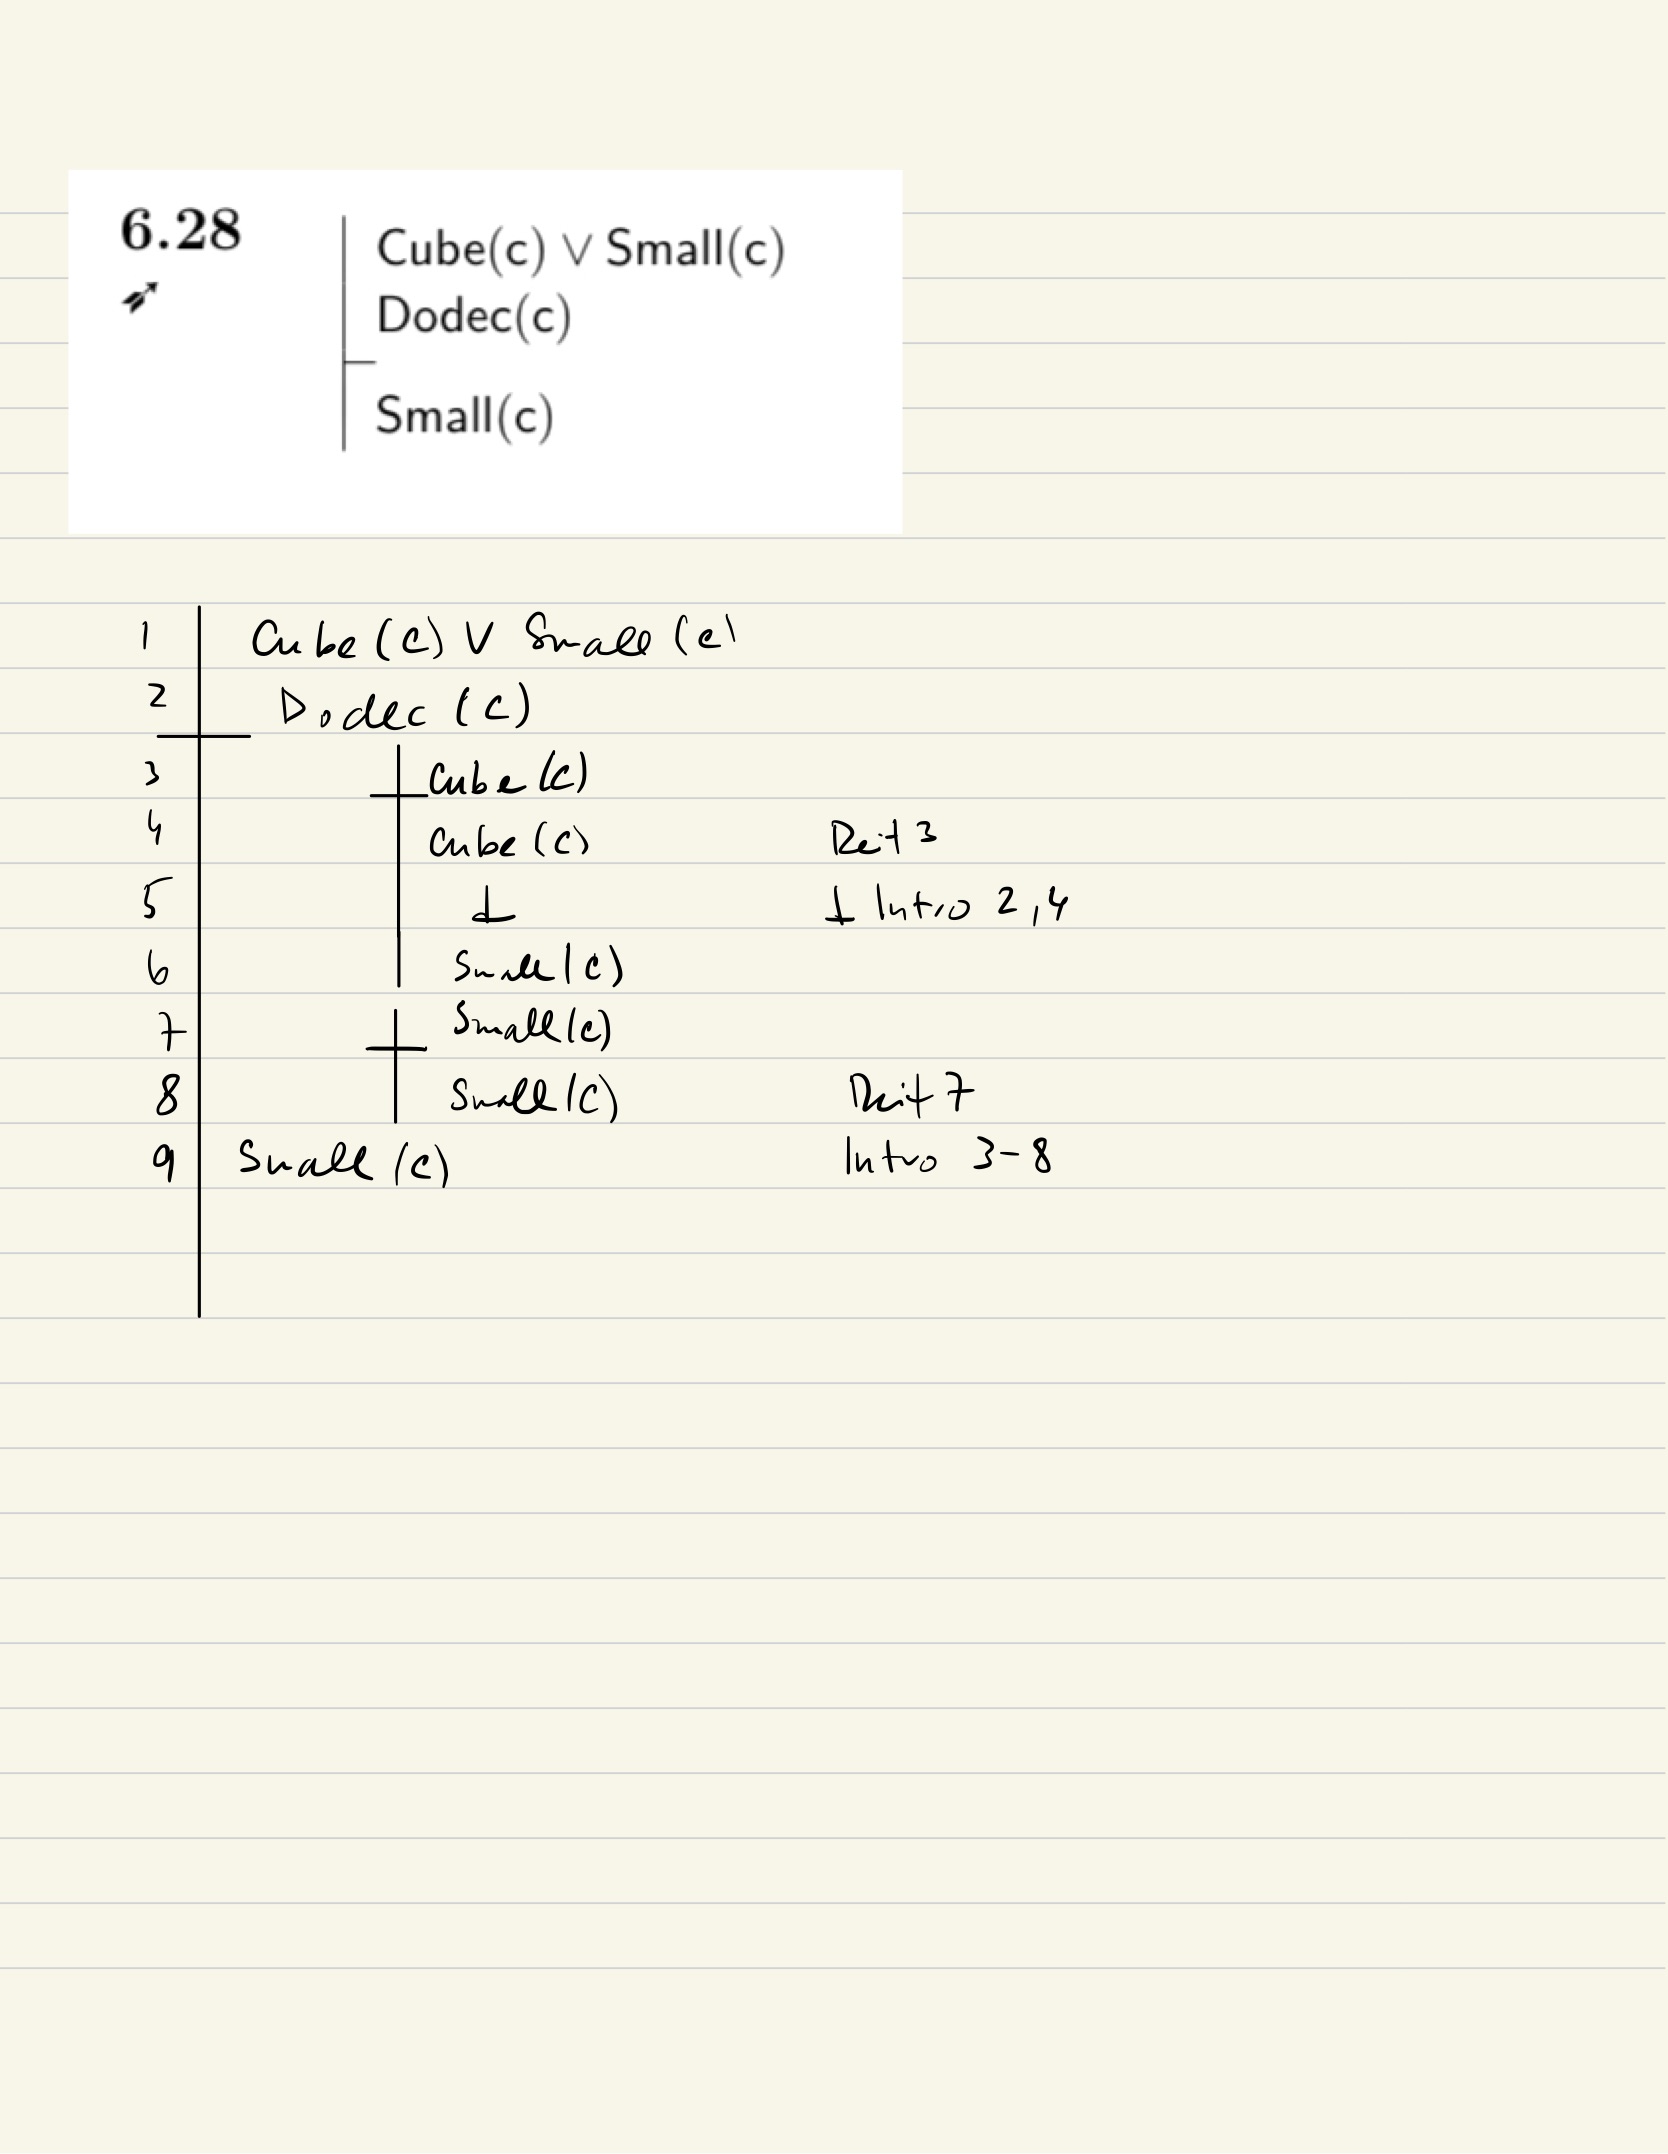 6.28 Cube(c) ∨ Small(c)
Dodec(c)
Small(c)
1 Cube (c) ∨ Small (c)
2 Dodec (c)
3 Cube (c)
4 Cube (c) Reit 3
5 ⊥ ⊥ Intro 2,4
6 Small (c)
7 Small (c)
8 Small (c) Reit 7
9 Small (c) Intro 3-8